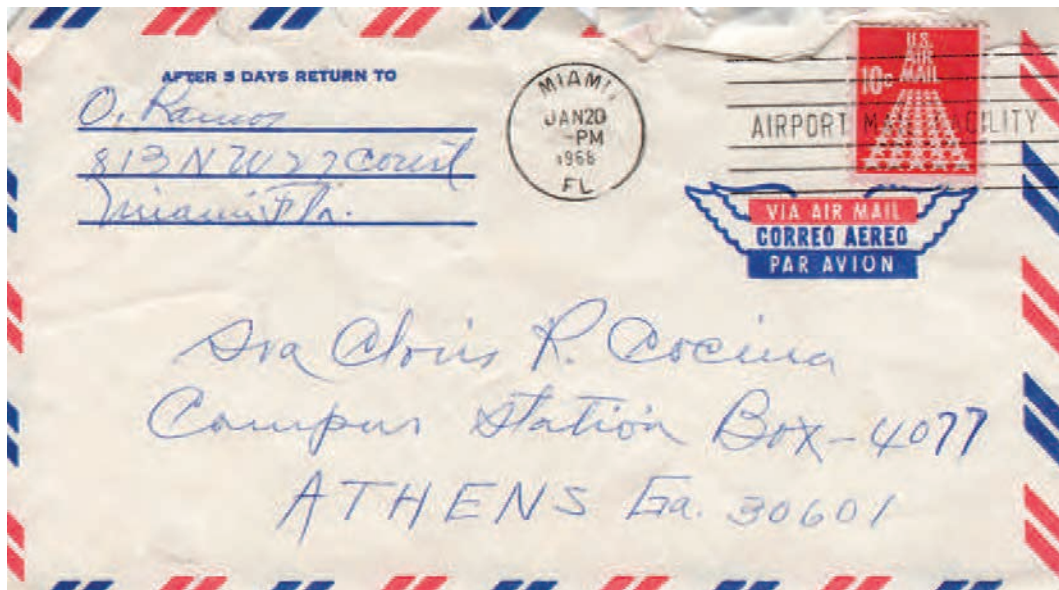 AFTER 5 DAYS RETURN TO
O. Ramos
813 N W 27 Court
Miami Fla.
MIAMI,
JAN 20
-PM
1968
FL
AIRPORT MAIL FACILITY
U.S.
AIR
MAIL
10c
VIA AIR MAIL
CORREO AEREO
PAR AVION
Sra R. Cocina
Campus Station Box-4077
ATHENS Ga. 30601